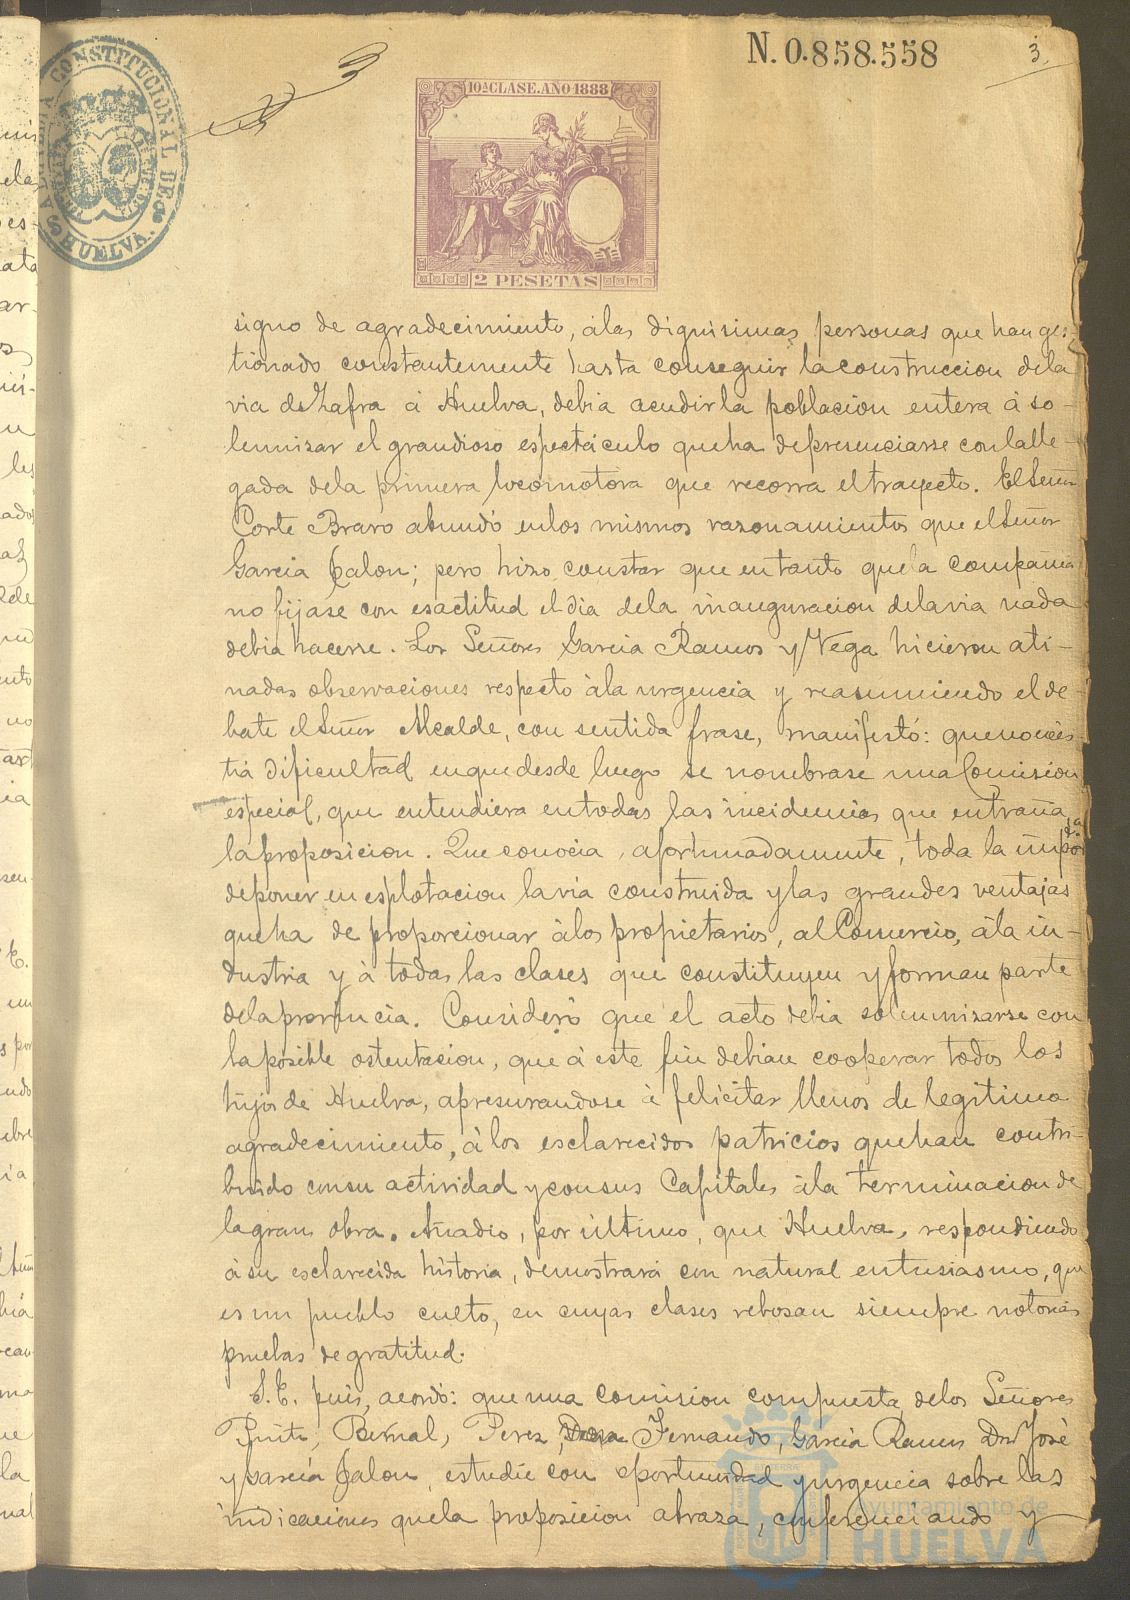 N. 0.858.558
3.
3
ALCALDIA CONSTITUCIONAL DE HUELVA.
10ª CLASE. AÑO 1888
2 PESETAS
signo de agradecimiento, à las dignisimas personas que han ges-
tionado constantemente hasta conseguir la construccion dela
via de Zafra à Huelva, debia acudir la poblacion entera à so-
lemnizar el grandioso espectáculo que ha de presenciarse con la lle-
gada dela primera locomotora que recorra el trayecto. El Señor
Corte Bravo abundó en los mismos razonamientos que el Señor
Garcia Jalon; pero hizo constar que en tanto que la compañia
no fijase con esactitud el dia dela inauguracion dela via nada
debia hacerse. Los Señores Garcia Ramos y Vega hicieron ati-
nadas observaciones respecto à la urgencia y reasumiendo el de-
bate el Señor Alcalde, con sentida frase, manifestó: que no ecsis-
tia dificultad en que desde luego se nombrase una Comision
especial, que entendiera en todas las incidencias que entraña
la proposicion. Que conocia, afortunadamente, toda la impor ta
de poner en esplotacion la via construida y las grandes ventajas
que ha de proporcionar à los propietarios, al Comercio, à la in-
dustria y à todas las clases que constituyen y forman parte
dela provincia. Consideró que el acto debia solemnizarse con
la posible ostentacion, que à este fin debian cooperar todos los
hijos de Huelva, apresurandose à felicitar llenos de legitimo
agradecimiento, à los esclarecidos patricios que han contri-
buido con su actividad y con sus Capitales à la terminacion de
la gran obra. Añadió, por último, que Huelva, respondiendo
à su esclarecida historia, demostrará con natural entusiasmo, que
es un pueblo culto, en cuyas clases rebosan siempre notorias
pruebas de gratitud.
S. E. pues, acordó: que una comision compuesta delos Señores
Bernal, Perez, Fernando, Garcia Ramos Don José
y Garcia Jalon, estudie con oportunidad y urgencia sobre las
indicaciones que la proposicion abraza, conferenciando y
Ayuntamiento de
HUELVA